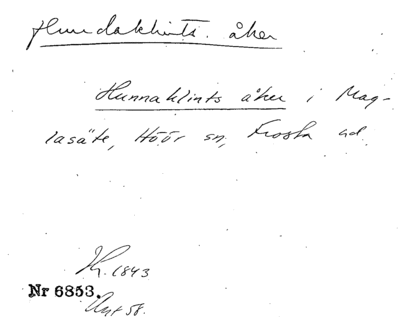 Hundaklints åker
Hunnaklints åker i Mag-
lasäte, Höör sn, Frosta hd
1843
Nr 6853.
58.